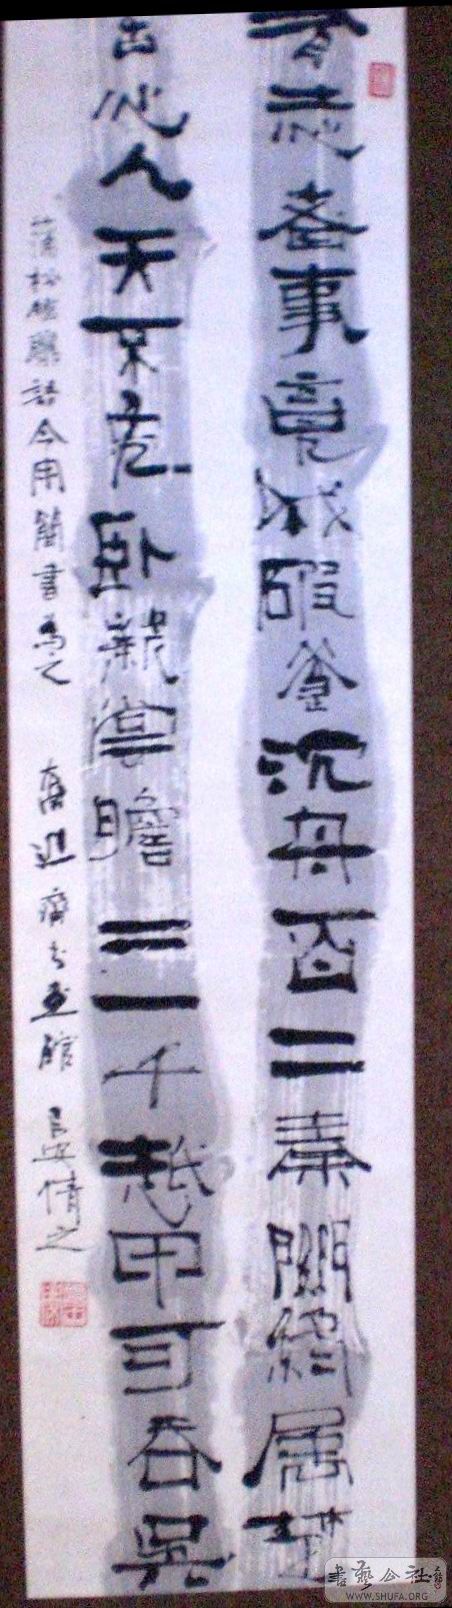 有志者事竟成破釜沉舟百二秦關終屬楚
苦心人天不負臥薪嘗膽三千越甲可吞吳
蒲松齡聯語今用簡書為之
書藝公社
WWW.SHUFA.ORG